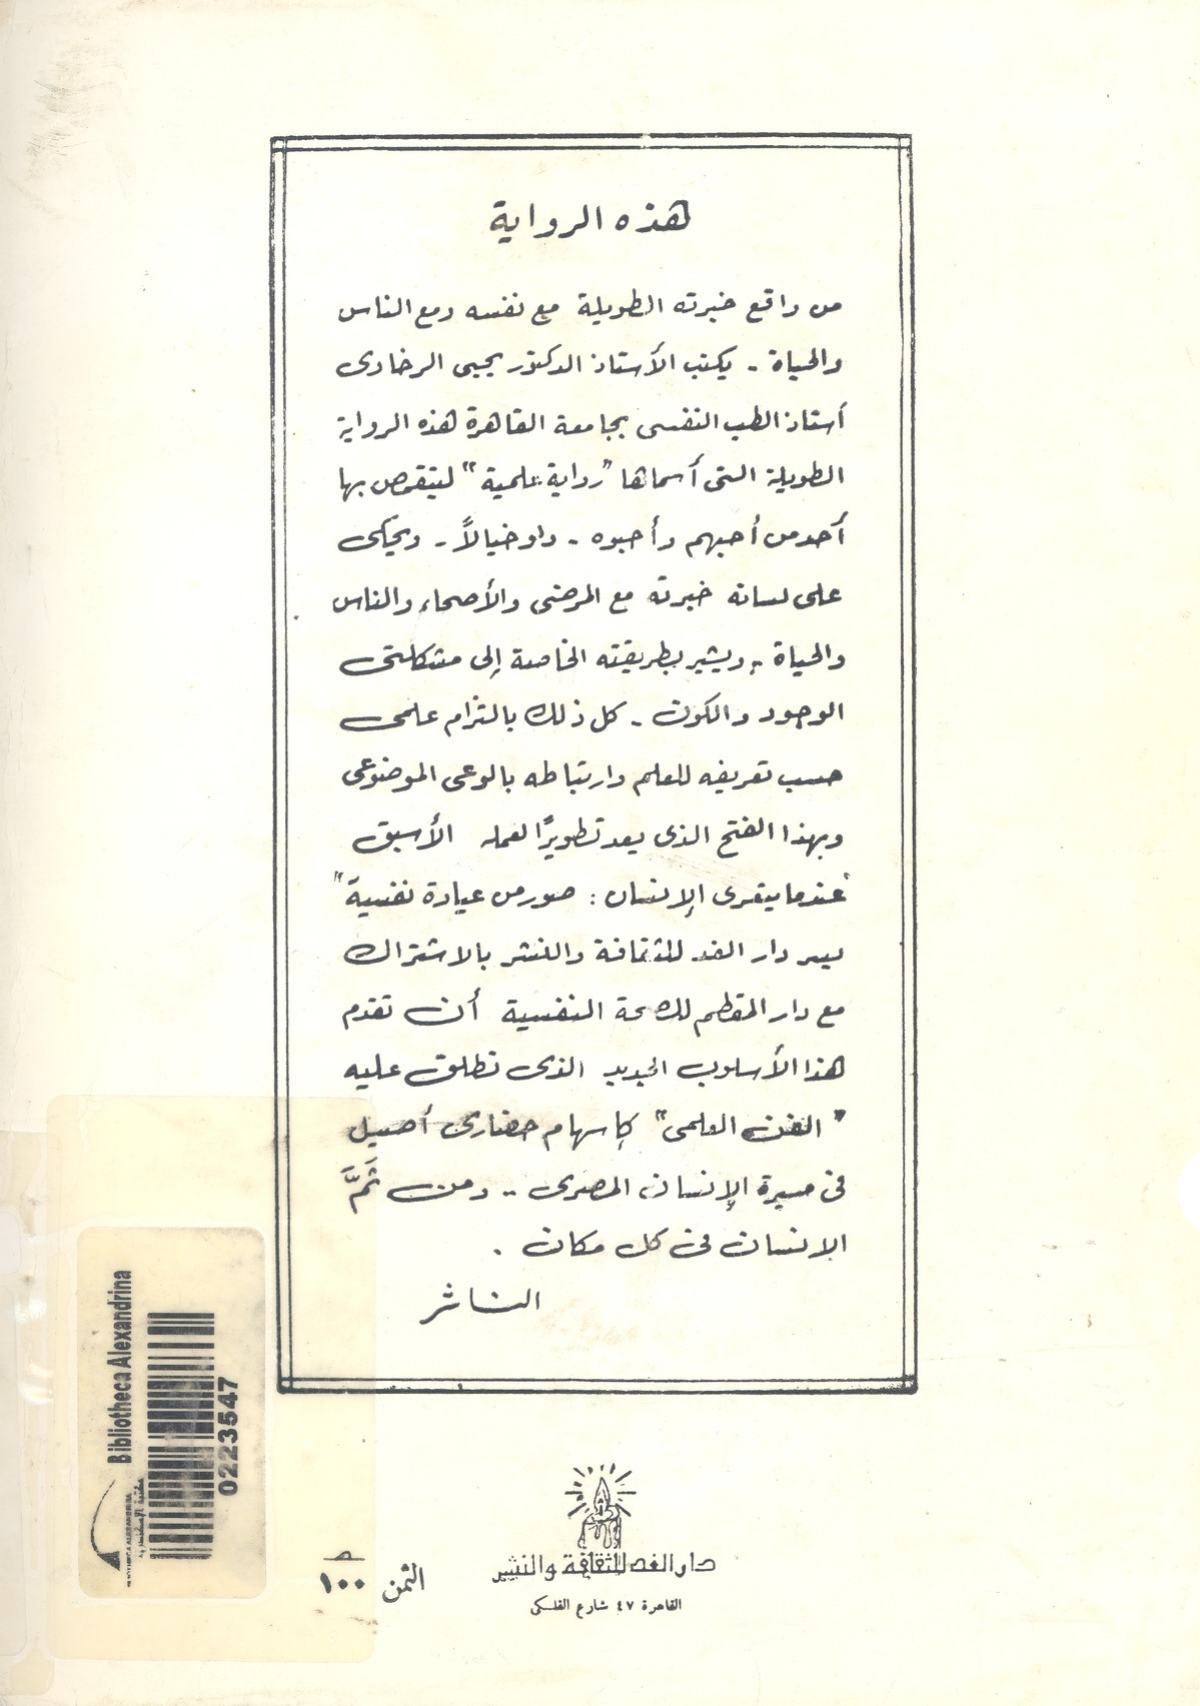 هذه الرواية
من واقع خبرته الطويلة مع نفسه ومع الناس
والحياة - يكتب الأستاذ الدكتور يحيى الرخاوى
أستاذ الطب النفسى بجامعة القاهرة هذه الرواية
الطويلة التى أسماها "رواية علمية" ليتقمص بها
أحد من أحبهم وأحبوه - ولو خيالاً - ويحكى
على لسانه خبرته مع المرضى والأصحاء والناس
والحياة - ويشير بطريقته الخاصة إلى مشكلتى
الوجود والكون - كل ذلك بالتزام علمى
حسب تعريفه للعلم وارتباطه بالوعى الموضوعى
وبهذا الفتح الذى يعد تطويرًا لعمله الأسبق
"عندما يتعرى الإنسان : صور من عيادة نفسية"
يسر دار الغد للثقافة والنشر بالاشتراك
مع دار المقطم للصحة النفسية أن تقدم
هذا الأسلوب الجديد الذى نطلق عليه
"الفن العلمى" كإسهام حضارى أصيل
فى مسيرة الإنسان المصرى .. ومن ثَمَّ
الإنسان فى كل مكان .
الناشر
دار الغد للثقافة والنشر
القاهرة ٤٧ شارع الفلكى
الثمن ١٠٠
Bibliotheca Alexandrina
0223547
مكتبة الإسكندرية